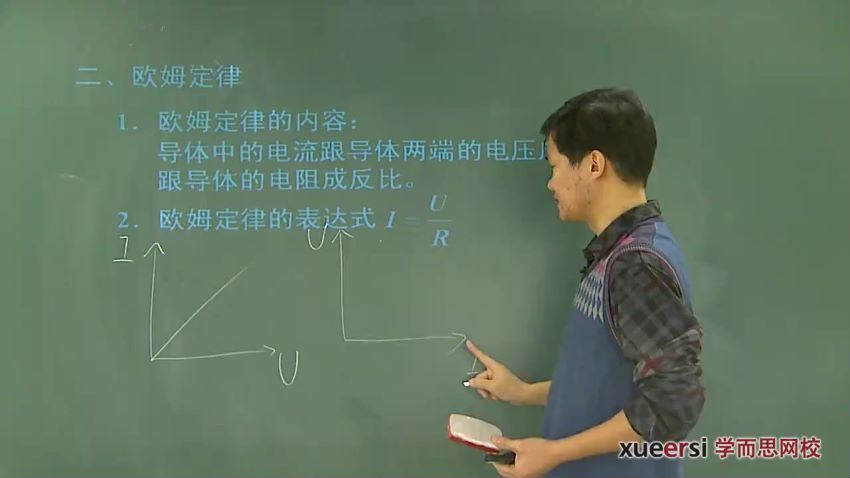 二、欧姆定律
1. 欧姆定律的内容：
导体中的电流跟导体两端的电压
跟导体的电阻成反比。
2. 欧姆定律的表达式 I = U/R
I
U
U
I
xueersi 学而思网校